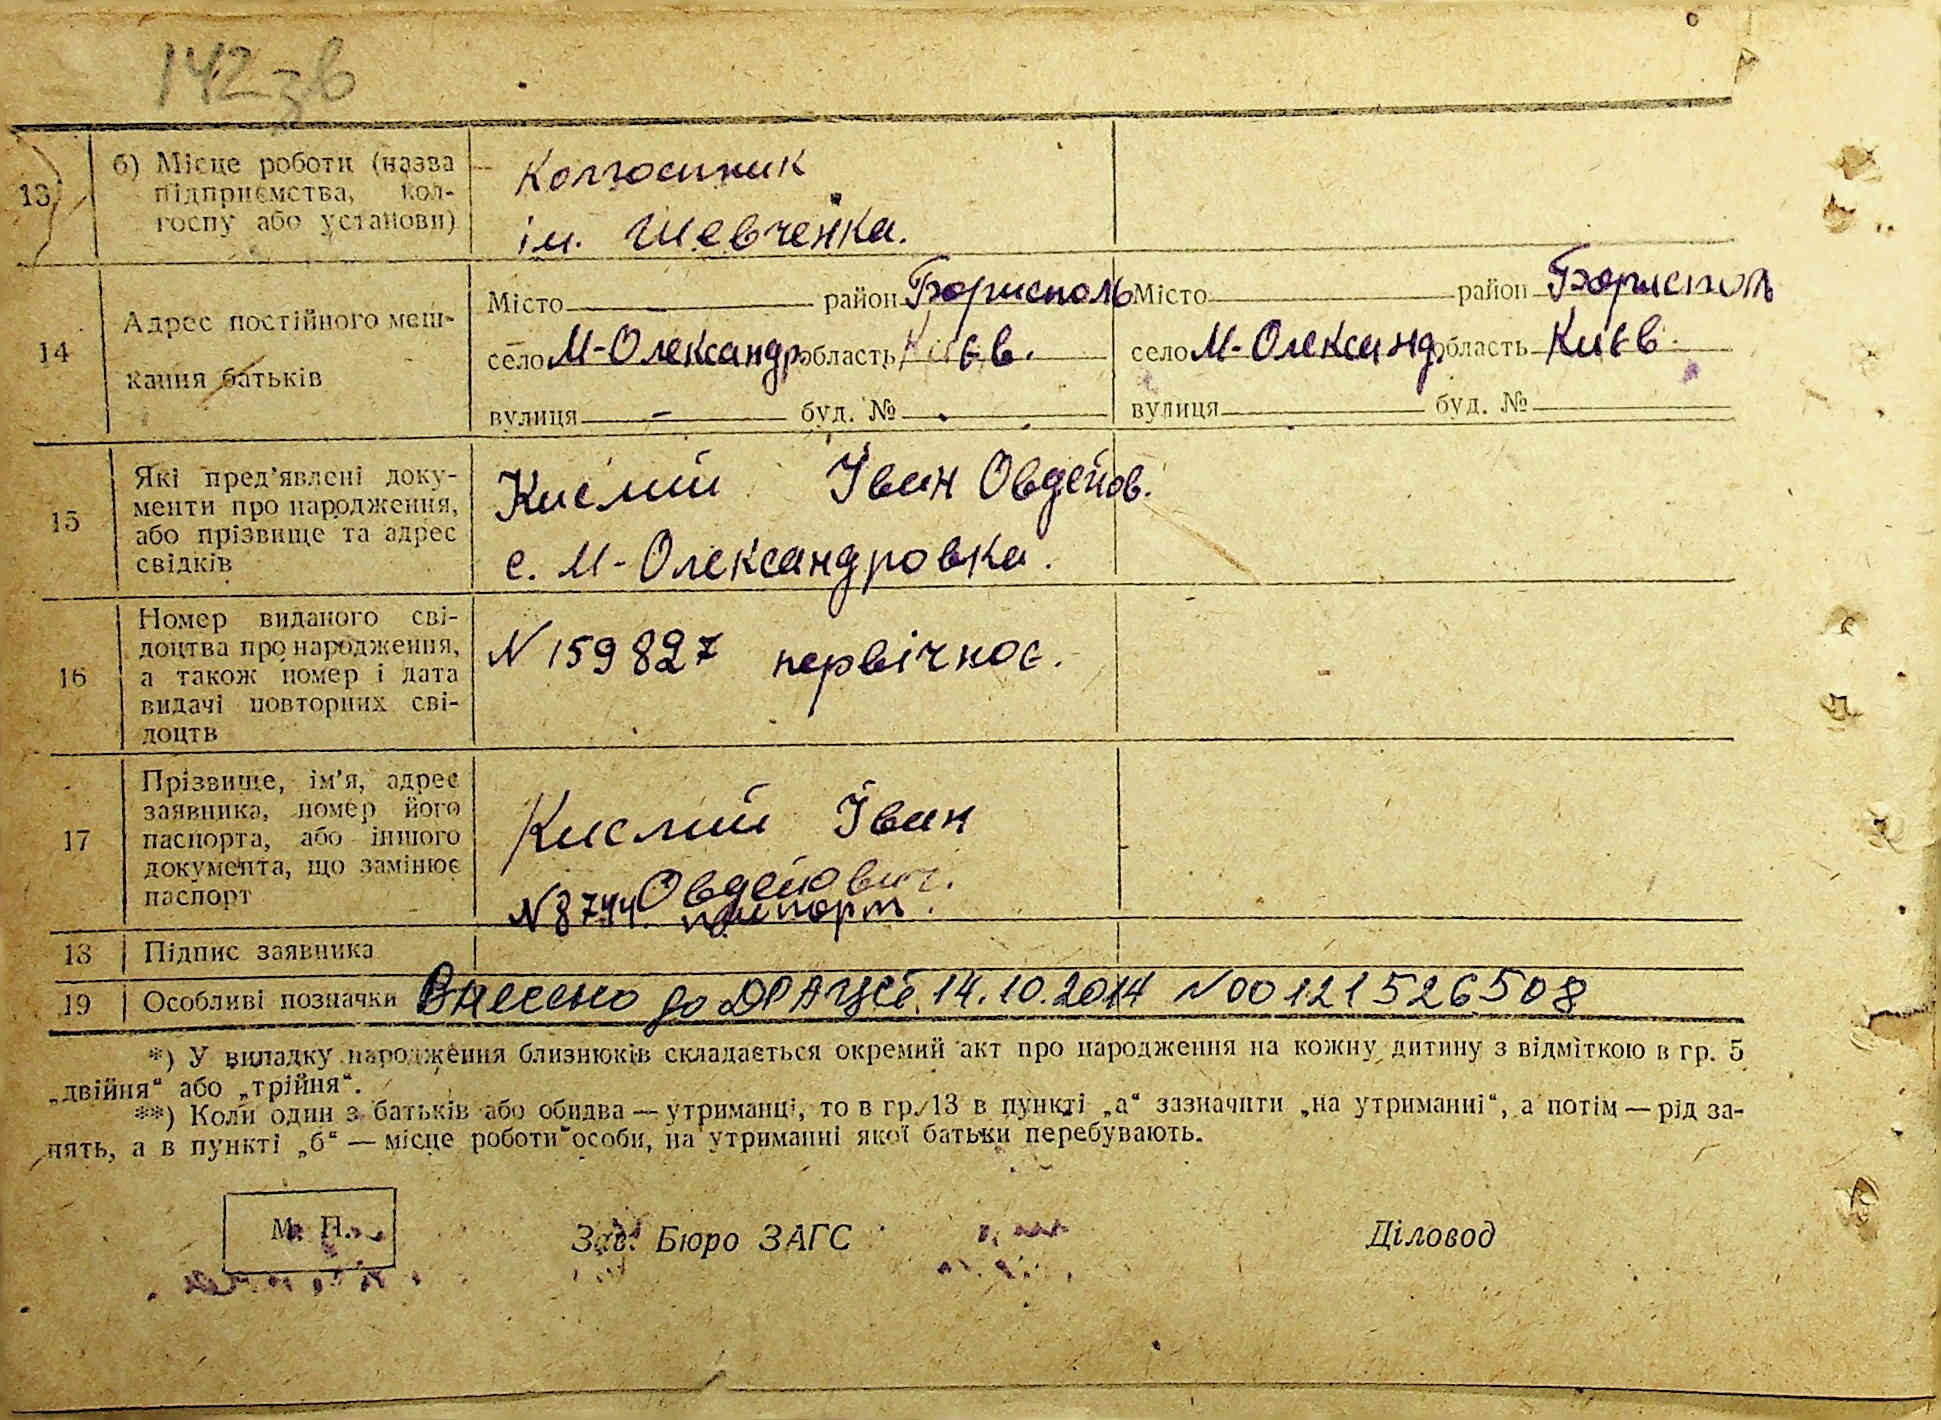 142зв
13
б) Місце роботи (назва
підприємства, кол-
госпу або установи)
Колгоспник
ім. Шевченка.
14
Адрес постійного меш-
кання батьків
Місто район Борисполь
село М-Олександр область Києв.
вулиця - буд. №
Місто район Борисполь
село М-Олександр область Києв.
вулиця буд. №
15
Які пред'явлені доку-
менти про народження,
або прізвище та адрес
свідків
Кислий Іван Овдейов.
с. М-Олександровка.
16
Номер виданого сві-
доцтва про народження,
а також номер і дата
видачі повторних сві-
доцтв
N 159827 первічноє.
17
Прізвище, ім'я, адрес
заявника, номер його
паспорта, або іншого
документа, що замінює
паспорт
Кислий Іван
Овдейович.
N8744 паспорт.
18 Підпис заявника
19 Особливі позначки Внесено до ДРАЦСг. 14.10.2014 N00121526508
*) У випадку народження близнюків складається окремий акт про народження на кожну дитину з відміткою в гр. 5
„двійня“ або „трійня“.
**) Коли один з батьків або обидва — утриманці, то в гр. 13 в пункті „а“ зазначити „на утриманні“, а потім — рід за-
нять, а в пункті „б“ — місце роботи особи, на утриманні якої батьки перебувають.
М. П.
Зав. Бюро ЗАГС
Діловод